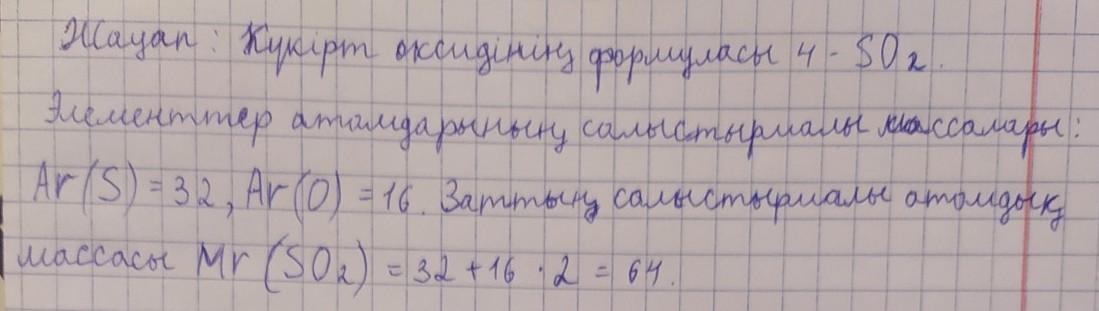 Жауап: Күкірт оксидінің формуласы 4 - SO₂.
Элементтер атомдарының салыстырмалы массалары:
Ar(S) = 32, Ar(O) = 16. Заттың салыстырмалы атомдық
массасы Mr (SO₂) = 32 + 16 · 2 = 64.